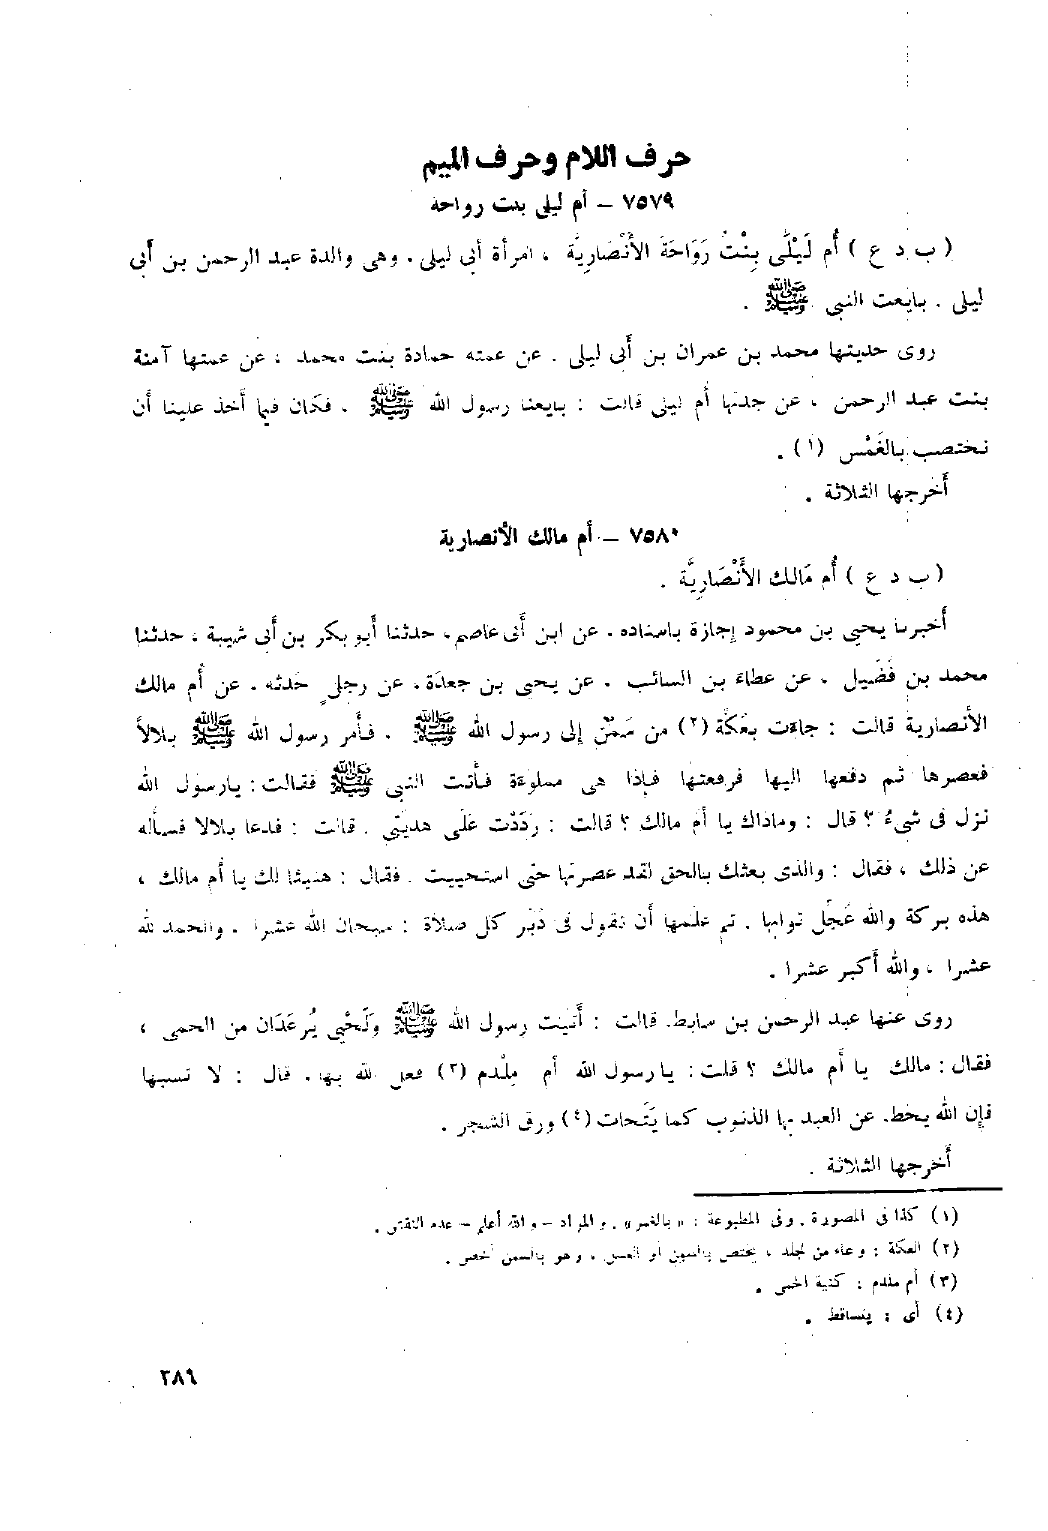 حرف اللام وحرف الميم
٧٥٧٩ – أم ليلى بنت رواحة
( ب د ع ) أُم لَيْلَى بِنْتُ رَوَاحَةَ الأَنْصَارِيَّة ، امرأة أبى ليلى . وهى والدة عبد الرحمن بن أبى
ليلى . بايعت النبى ﷺ .
روى حديثها محمد بن عمران بن أبى ليلى . عن عمته حمادة بنت محمد ، عن عمتها آمنة
بنت عبد الرحمن ، عن جدتها أم ليلى قالت : بايعنا رسول الله ﷺ . فكان فيما أخذ علينا أن
نختصب بالغَمْس (١) .
أخرجها الثلاثة .
٧٥٨٠ – أم مالك الأنصارية
( ب د ع ) أُم مَالك الأَنْصَارِيَّة .
أخبرنا يحيى بن محمود إجازة باسناده . عن ابن أبى عاصم، حدثنا أبو بكر بن أبى شيبة ، حدثنا
محمد بن فُضَيل . عن عطاء بن السائب . عن يحيى بن جعدَة، عن رجلٍ حَدثه . عن أُم مالك
الأنصارية قالت : جاءَت بعُكَّة (٢) من سَمْنٍ إلى رسول الله ﷺ . فأمر رسول الله ﷺ بلالاً
فعصرها ثم دفعها اليها فرفعتها فإذا هى مملوءة فأتت النبى ﷺ فقالت: يارسول الله
نزل فى شىءٌ ؟ قال : وماذاك يا أم مالك ؟ قالت : رَدَدْت عَلى هديتى . قالت : فدعا بلالا فسأَله
عن ذلك ، فقال : والذى بعثك بالحق لقد عصرتها حتى استحييت . فقال : هنيئا لك يا أم مالك ،
هذه بركة والله عَجَّل ثوابها . ثم علمها أن تقول فى دُبُر كل صلاة : سبحان الله عشرا . والحمد لله
عشرا ، والله أكبر عشرا .
روى عنها عبد الرحمن بن سابط. قالت : أتيت رسول الله ﷺ ولَحْيِي يُرعَدَان من الحمى ،
فقال: مالك يا أم مالك ؟ قلت: يارسول الله أم مِلْدم (٣) فعل الله بها. قال : لا تسبها
فإن الله يحط. عن العبد بها الذنوب كما يَتَحات (٤) ورق الشجر .
أخرجها الثلاثة .
(١) كذا فى المصورة . وفى المطبوعة : « بالغمر» . والمراد – والله أعلم –
(٢) العكة : وعاء من جلد ، يختص بالسمن أو العسل ، وهو بالسمن أخص .
(٣) أم ملدم : كنية الحمى .
(٤) أى : يتساقط .
٣٨٩